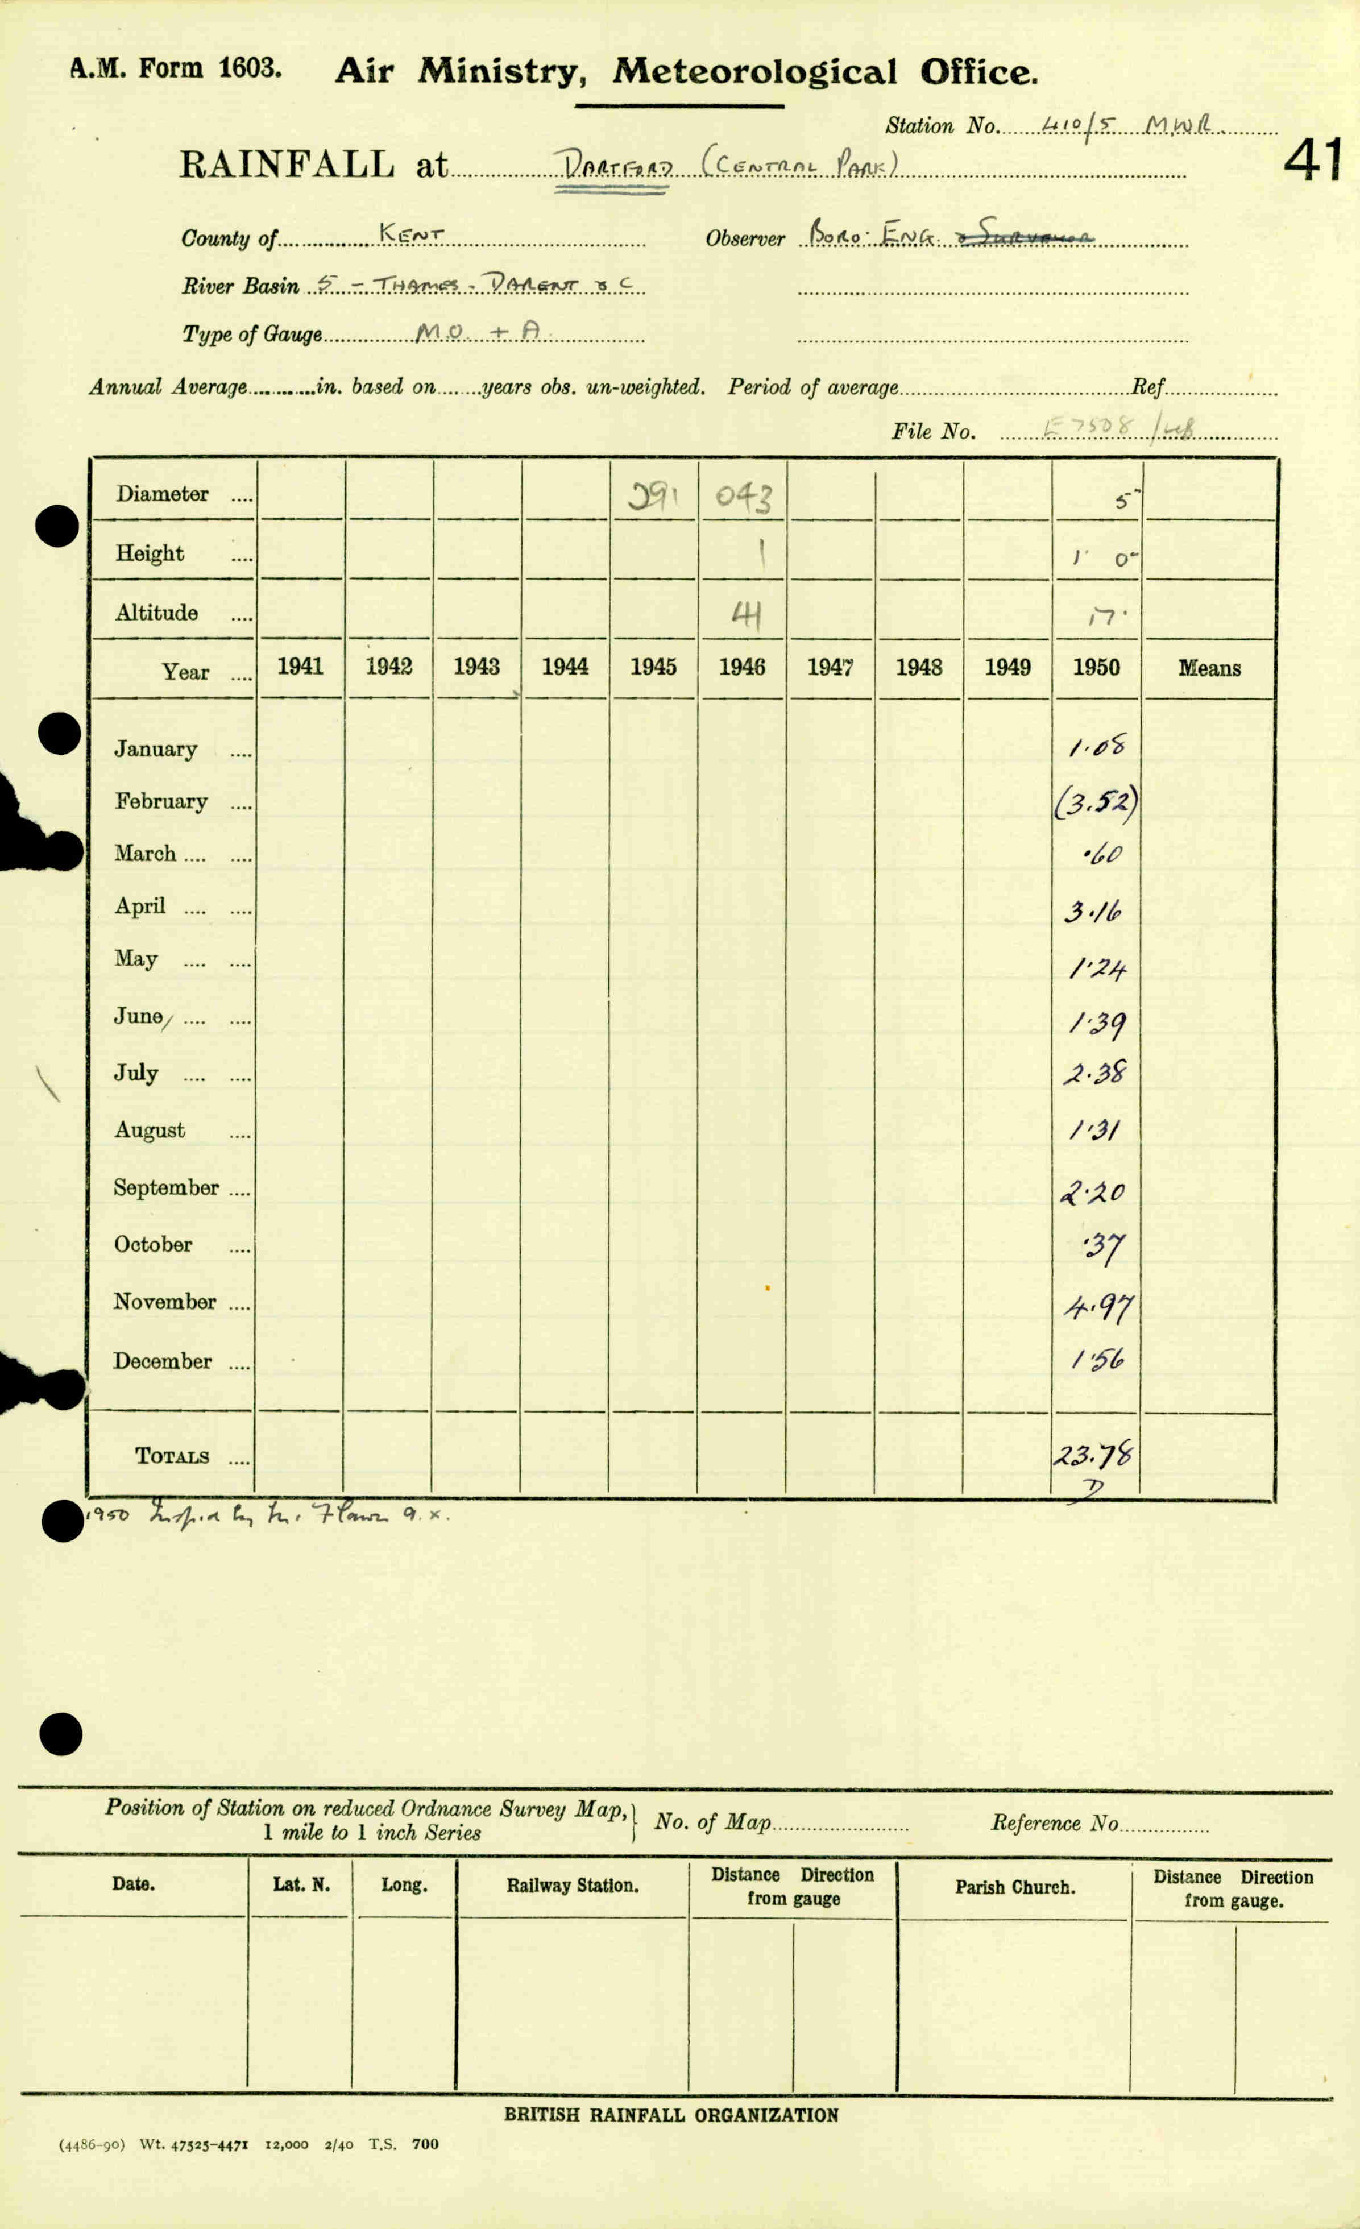 A.M. Form 1603. Air Ministry, Meteorological Office.
Station No. 410/5 MWR.
RAINFALL at DARTFORD (CENTRAL PARK) 41
County of KENT Observer BORO. ENG. & SURVEYOR
River Basin 5 - THAMES - DARENT & C
Type of Gauge M.O. + A.
Annual Average in. based on years obs. un-weighted. Period of average Ref.
File No. E7508 /48
Diameter .... 291 043 5"
Height .... 1 1' 0"
Altitude .... 41 17'
Year .... 1941 1942 1943 1944 1945 1946 1947 1948 1949 1950 Means
January .... 1.08
February .... (3.52)
March .... .... .60
April .... .... 3.16
May .... .... 1.24
June .... .... 1.39
July .... .... 2.38
August .... 1.31
September .... 2.20
October .... .37
November .... 4.97
December .... 1.56
TOTALS .... 23.78
D
1950 Insp.d by Mr. 9.x.
Position of Station on reduced Ordnance Survey Map,} No. of Map Reference No.
1 mile to 1 inch Series
Date. Lat. N. Long. Railway Station. Distance Direction from gauge Parish Church. Distance Direction from gauge.
BRITISH RAINFALL ORGANIZATION
(4486-90) Wt. 47525-4471 12,000 2/40 T.S. 700